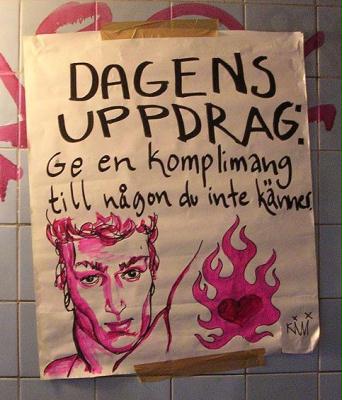 DAGENS
UPPDRAG:
Ge en komplimang
till någon du inte känner.